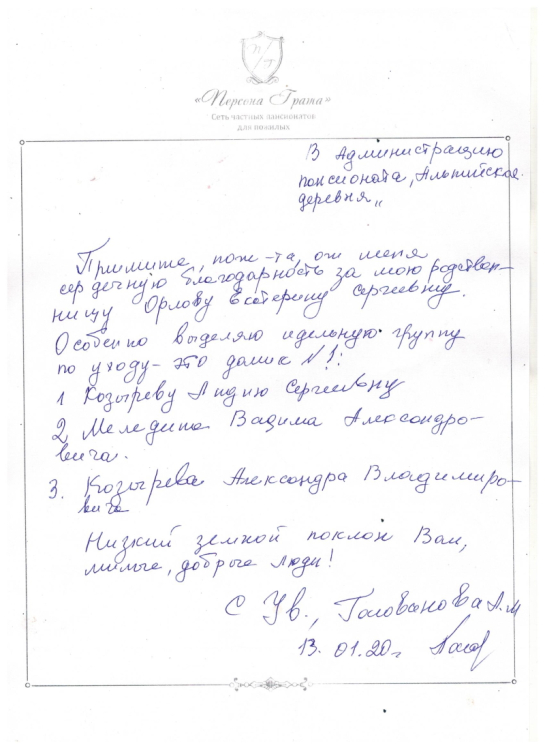 П Г
«Персона Грата»
Сеть частных пансионатов
для пожилых
В Администрацию
пансионата „Альпийская
деревня"
Примите, пож-та, от меня
сердечную благодарность за мою родствен-
ницу Орлову Екатерину Сергеевну.
Особенно выделяю идельную группу
по уходу - это домик №1:
1 Козыреву Лидию Сергеевну
2, Меледина Вадима Александро-
вича.
3. Козырева Александра Владимиро-
вича
Низкий земной поклон Вам,
милые, добрые люди!
С Ув., Голованова А.М
13.01.20г